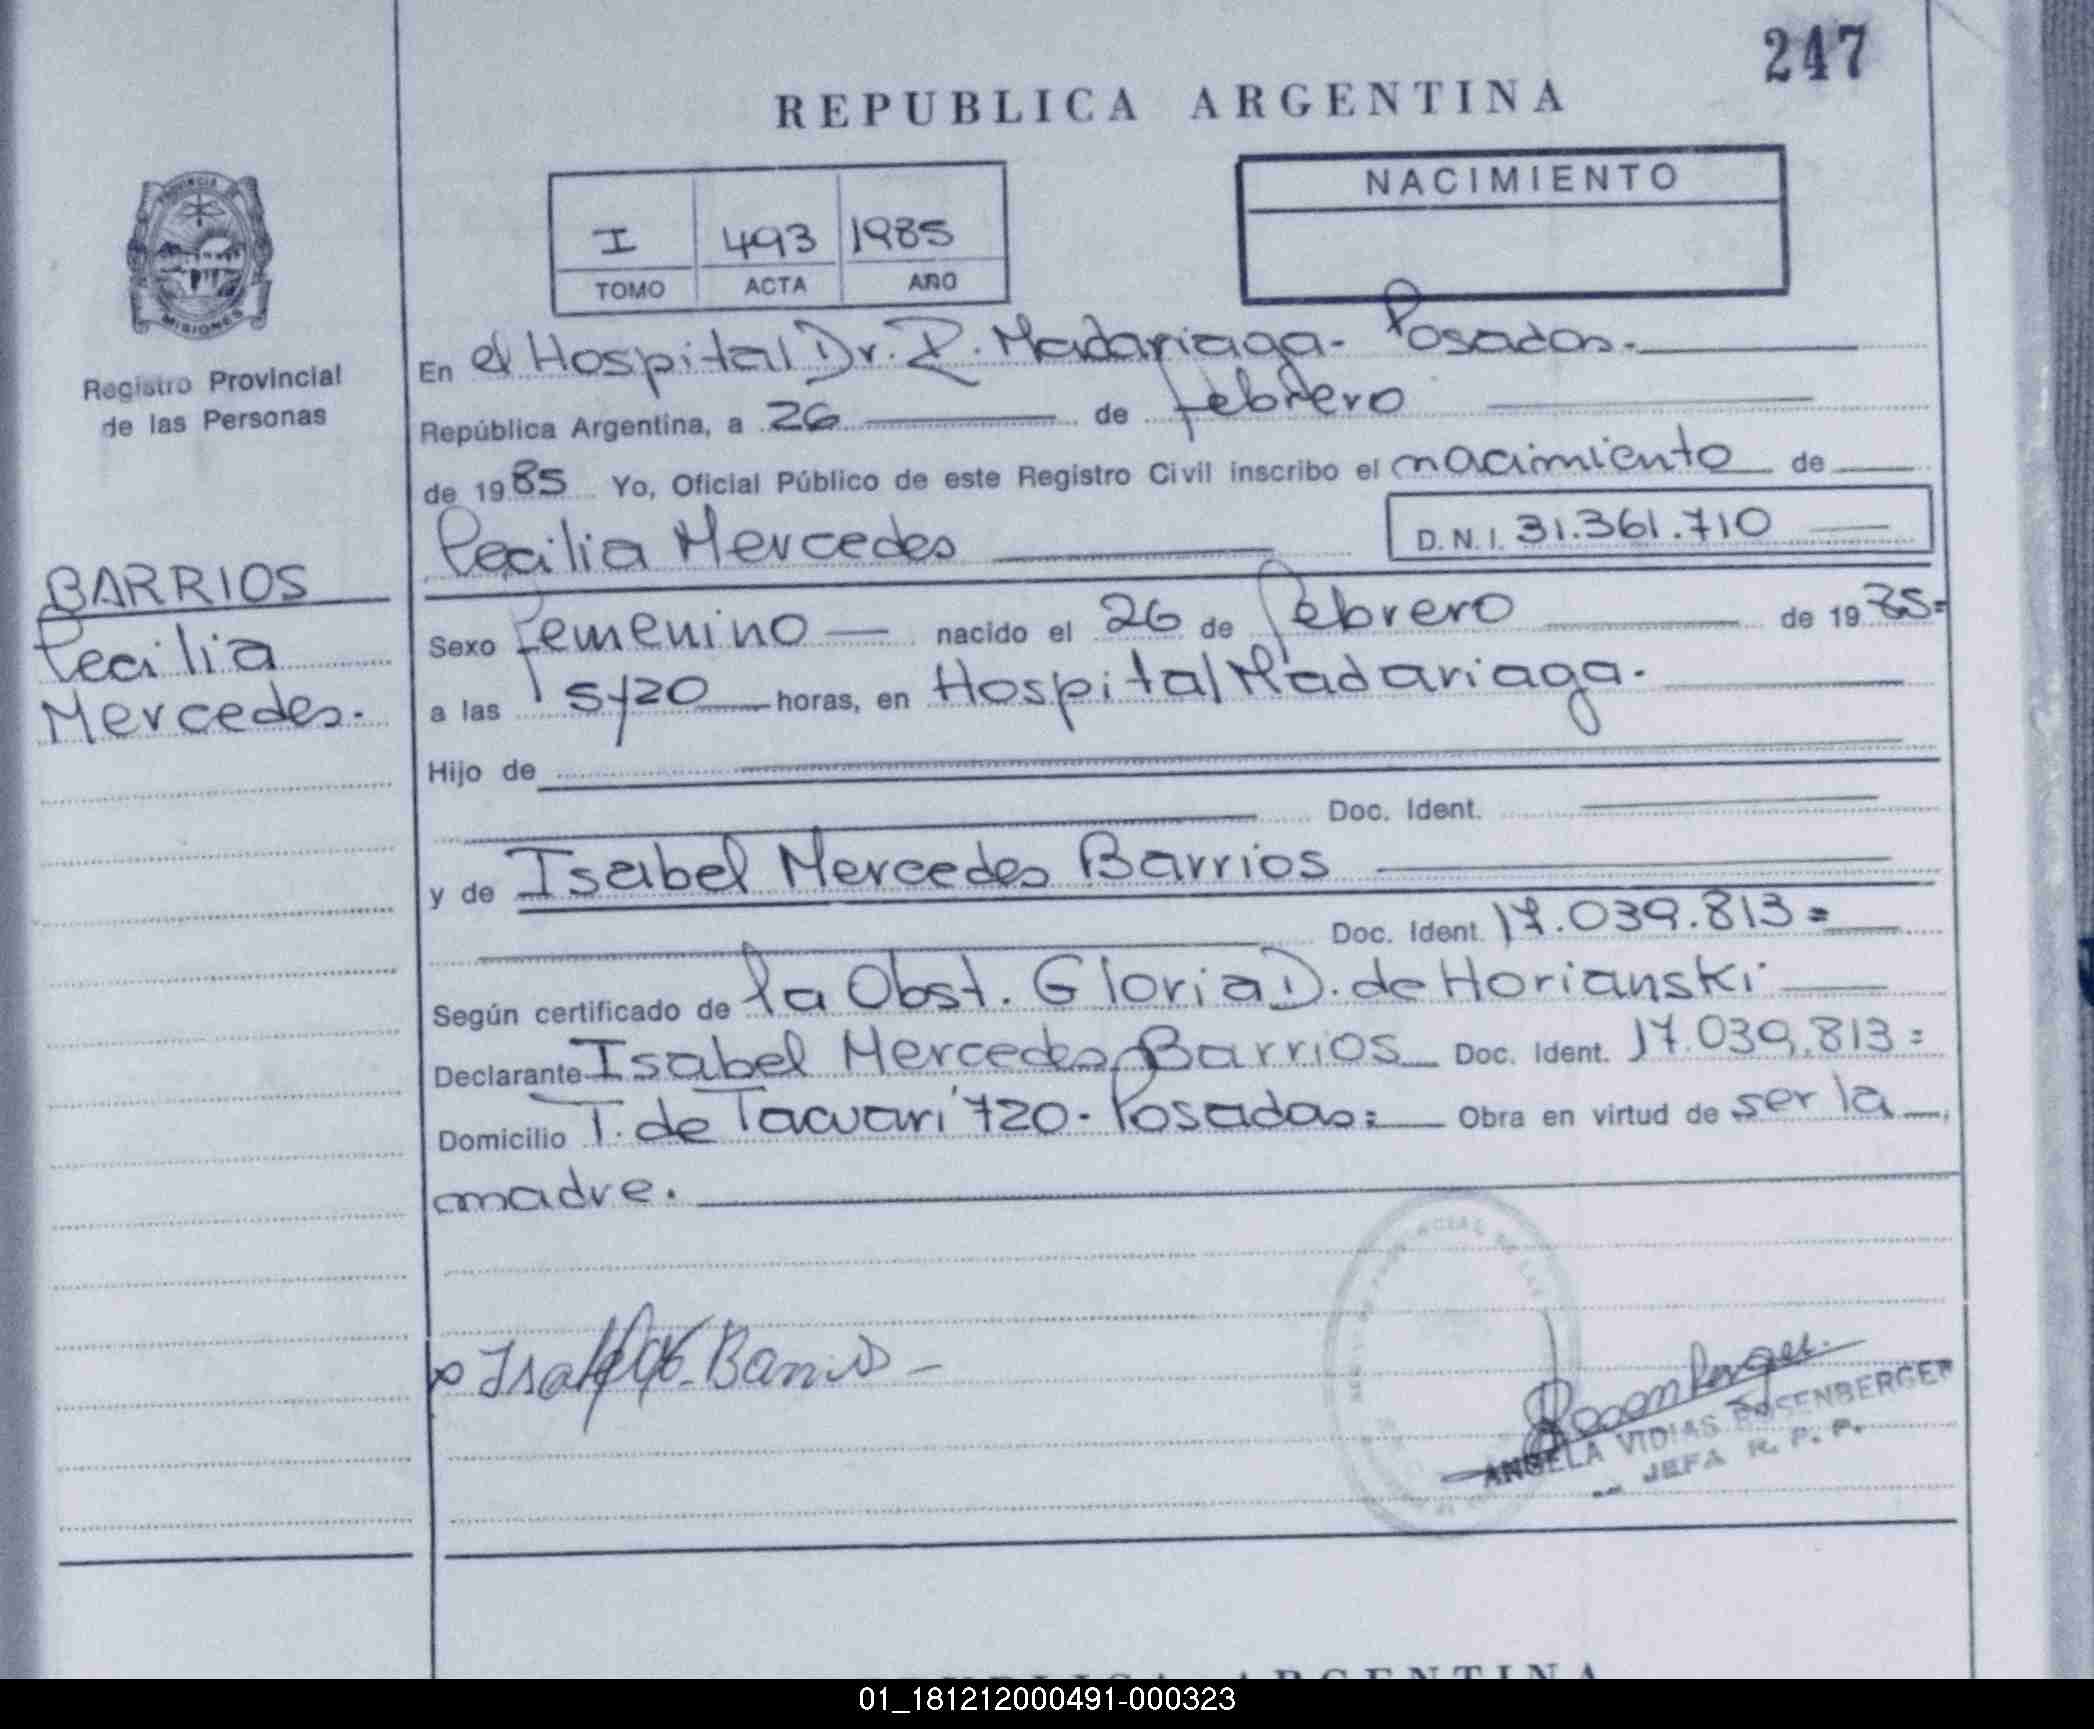 247
REPUBLICA ARGENTINA
NACIMIENTO
I 493 1985
TOMO ACTA AÑO
PROVINCIA DE
MISIONES
Registro Provincial
de las Personas
BARRIOS
Cecilia
Mercedes.
En el Hospital Dr. R. Madariaga - Posadas.
República Argentina, a 26 de febrero
de 1985 Yo, Oficial Público de este Registro Civil inscribo el nacimiento de
Cecilia Mercedes D.N.I. 31.361.710
Sexo Femenino nacido el 26 de Febrero de 1985=
a las 5/20 horas, en Hospital Madariaga.
Hijo de
Doc. Ident.
y de Isabel Mercedes Barrios
Doc. Ident. 17.039.813=
Según certificado de la Obst. Gloria D. de Horianski
Declarante Isabel Mercedes Barrios Doc. Ident. 17.039.813=
Domicilio T. de Tacuarí 720 - Posadas= Obra en virtud de ser la
madre.
Isabel M. Barrios
Rosenberger
ANGELA VIDIAS ROSENBERGER
JEFA R. P. P.
REPUBLICA ARGENTINA
01_181212000491-000323